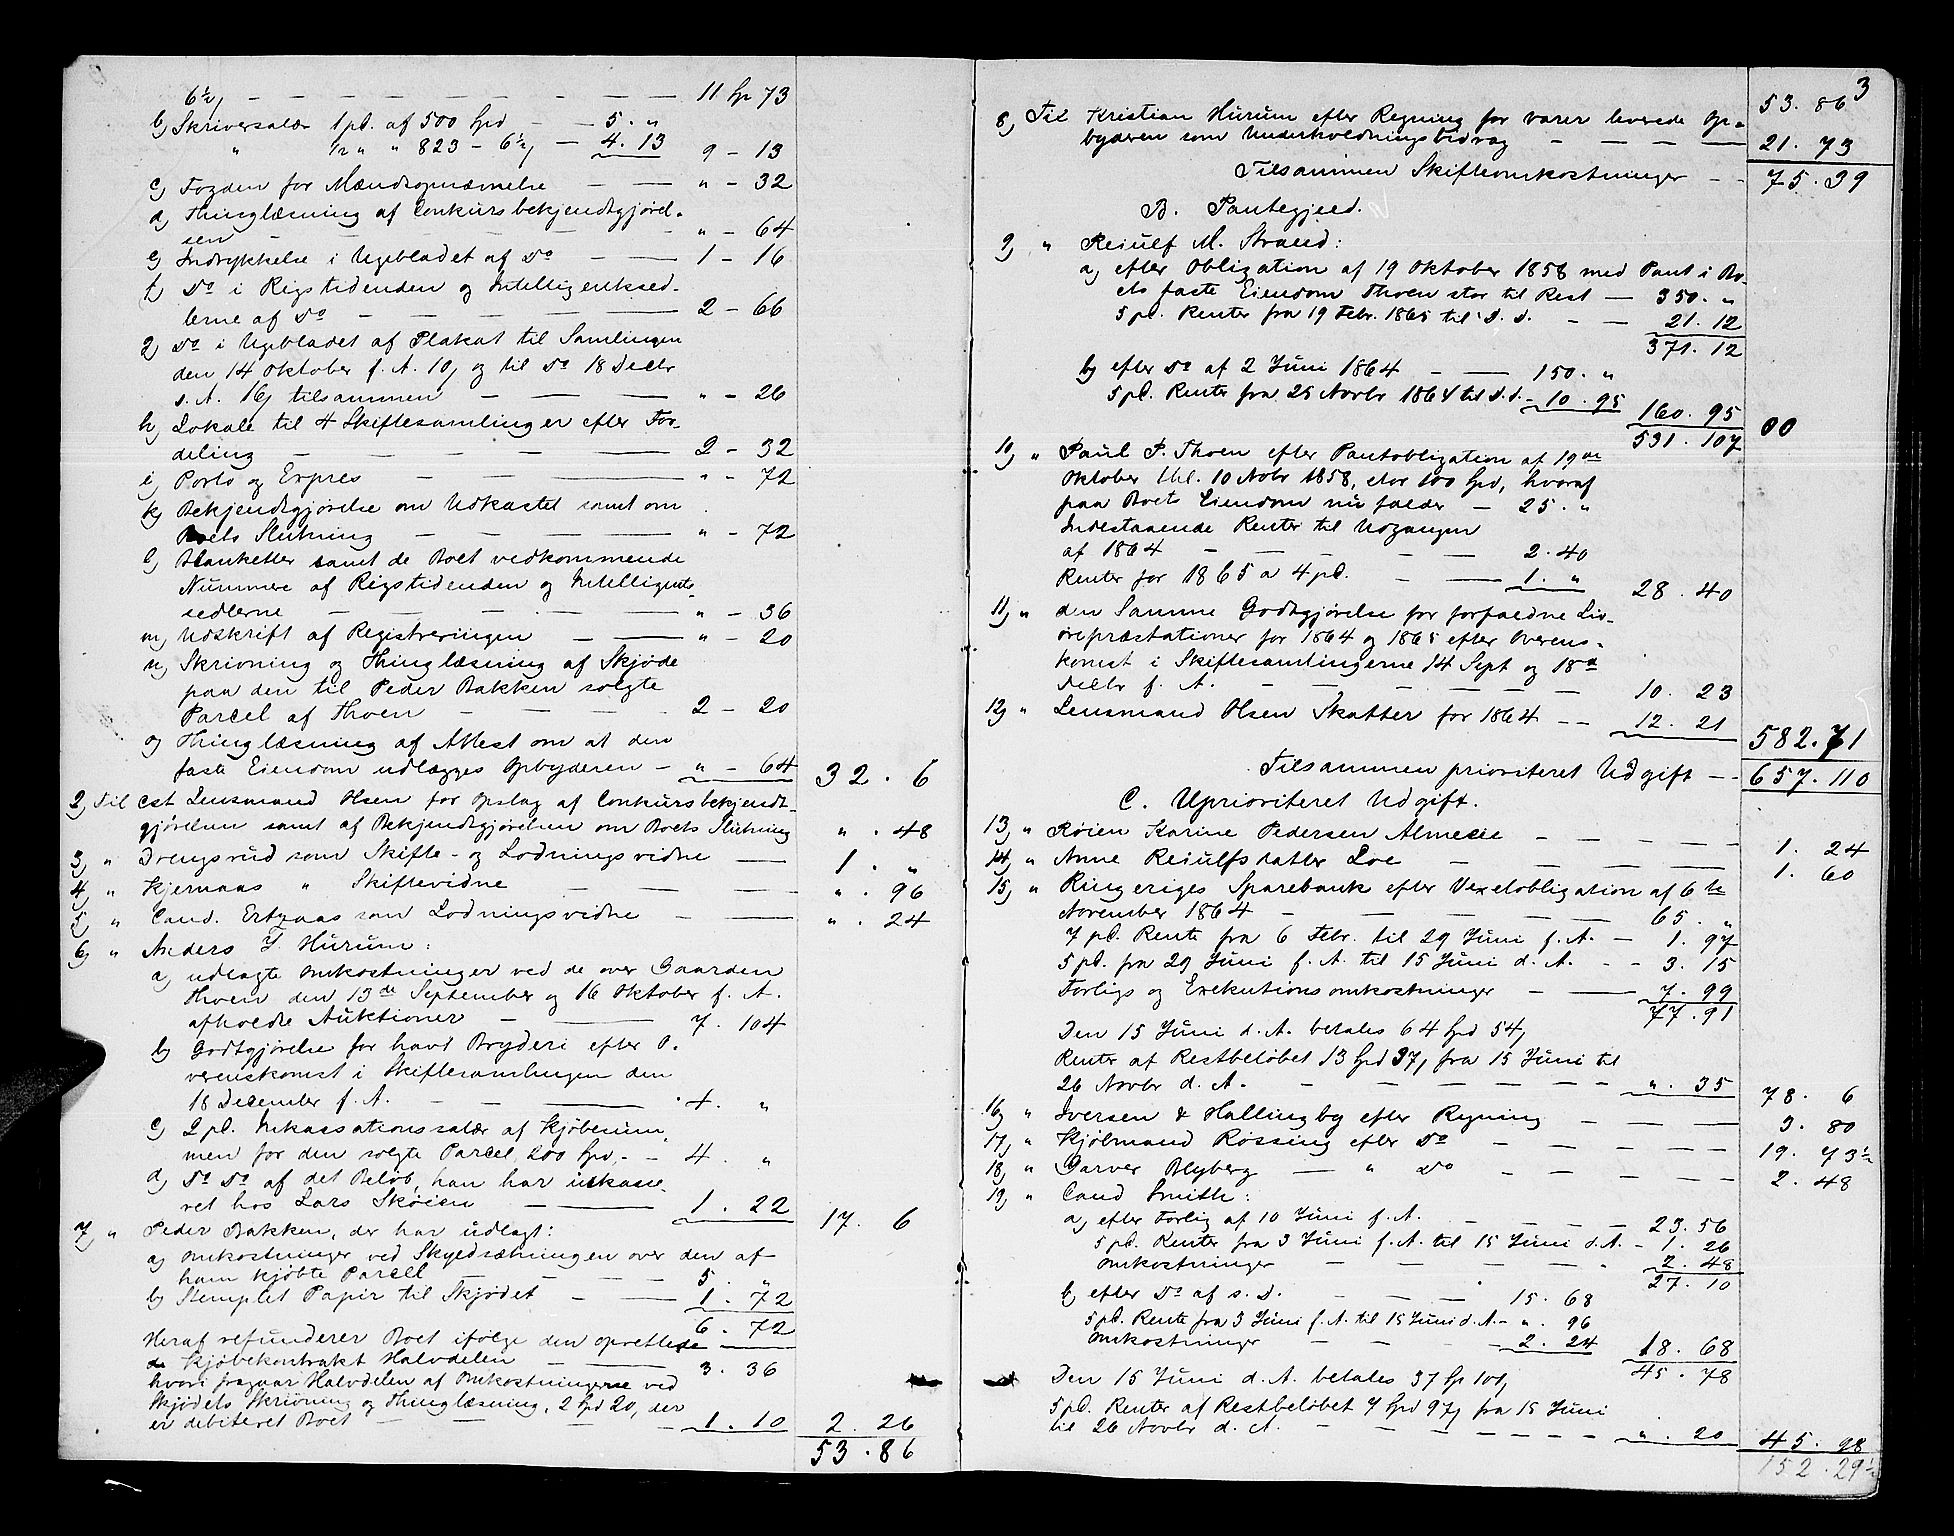 6½, — — — — — — — — 11 Spd 73
b, Skriversalær 1 pCt. af 500 Spd — — 5. "
" ½ " " 823 – 6½, — 4. 13 9 – 13
c, Fogden for Mændsopnævnelse — — " – 32
d, Thinglæsning af Conkursbekjendtgjørel-
sen — — — — — — " – 64
e, Indrykkelse i Ugebladet af Do — — 1 – 16
f, Do i Rigstidenden og Intelligentssed-
lerne af Do — — — — — 2 – 66
g, Do i Ugebladet af Plakat til Samlingen
den 14 Oktober f. A. 10, og til Do 18 Decbr
s. A. 16, tilsammen — — — " – 26
h, Lokale til 4 Skiftesamlinger efter For-
deling — — — — — 2 – 32
i, Porto og Expres — — — " – 72
k, Bekjendtgjørelse om Udkastet samt om
Boets Slutning — — — — " – 72
l, Blanketter samt de Boet vedkommende
Nummere af Rigstidenden og Intelligents-
sedlerne — — — — — " – 36
m, Udskrift af Registreringen — — " – 20
n, Skrivning og Thinglæsning af Skjøde
paa den til Peder Bakken solgte
Parcel af Thoen — — — 2 – 20
o, Thinglæsning af Attest om at den
faste Eiendom udlægges Opbyderen — " – 64 32. 6
2, Til cst Lensmand Olsen for Opslag af Conkursbekjendt-
gjørelsen samt af Bekjendtgjørelsen om Boets Slutning ". 48
3, " Drengsrud som Skifte- og Lodningsvidne — 1. "
4, " Kjernaas " Skiftevidne — — — ". 96
5, " Cand. Ertzaas som Lodningsvidne — — ". 24
6, " Anders T. Hurum:
a, udlagte Omkostninger ved de over Gaarden
Thoen den 13de September og 16 Oktober f. A.
afholdte Auktioner — — 7. 104
b, Godtgjørelse for havt Bryderi efter O-
verenskomst i Skiftesamlingen den
18 December f. A. — — — 4. "
c, 2 pCt. Inkassationssalær af Kjøbesum-
men for den solgte Parcel, 200 Spd, – – 4. "
d, Do Do af det Beløb, han har inkasse-
ret hos Lars Skøien — — 1. 22 17. 6
7, " Peder Bakken, der har udlagt:
a, Omkostninger ved Skyldsætningen over den af
ham kjøbte Parcel — — — 5. "
b, Stemplet Papir til Skjødet — — 1. 72
6. 72
Heraf refunderer Boet ifølge den oprettede
Kjøbekontrakt Halvdelen — — 3. 36
hvori fragaar Halvdelen af Omkostningerne ved
Skjødets Skrivning og Thinglæsning, 2 Spd 20, der
er debiteret Boet — — — 1. 10 2. 26
53. 86
3
53. 86
8, Til Kristian Hurum efter Regning for Varer leverede Op-
byderen som Underholdningsbidrag — — — — 21. 73
Tilsammen Skifteomkostninger — — 75. 39
B. Pantegjeld.
9, " Reiulf M. Strand:
a, efter Obligation af 19 Oktober 1858 med Pant i Bo-
ets faste Eiendom Thoen stor til Rest — 350. "
5 pCt. Renter fra 19 Febr. 1865 til D. D. — — 21. 12
371. 12
b, efter Do af 2 Juni 1864 — — 150. "
5 pCt. Renter fra 25 Novbr 1864 til D. D. – 10. 95 160. 95
531. 107
10, " Paul P. Thoen efter Pantobligation af 19de
Oktober thl. 10 Novbr 1858, stor 100 Spd, hvoraf
paa Boets Eiendom nu falder — 25. "
Indestaaende Renter til Udgangen
af 1864 — — — — — 2. 40
Renter for 1865 a 4 pCt. — — 1. " 28. 40
11, " den Samme Godtgjørelse for forfaldne Liv-
ørepræstationer for 1864 og 1865 efter Overens-
komst i Skiftesamlingerne 14 Sept og 18de
Decbr f. A. — — — — — — 10. 23
12, " Lensmand Olsen Skatter for 1864 – – 12. 21
582. 71
Tilsammen prioriteret Udgift — — 657. 110
C. Uprioriteret Udgift.
13, " Røien Karine Pedersen Almelie — — — — 1. 24
14, " Anne Reiulfsdatter Loe — — — — 1. 60
15, " Ringeriges Sparebank efter Vexelobligation af 6te
November 1864 — — — — — 65. "
7 pCt. Rente fra 6 Febr. til 29 Juni f. A. — 1. 97
5 pCt. fra 29 Juni f. A. til 15 Juni d. A. – – 3. 15
Forligs og Exekutionsomkostninger — — 7. 99
77. 91
Den 15 Juni d. A. betales 64 Spd 54,
Renter af Restbeløbet 13 Spd 37, fra 15 Juni til
26 Novbr d. A. — — — — — — ". 35 78. 6
16, " Iversen & Hallingby efter Regning — — — 3. 80
17, " Kjøbmand Røssing efter Do — — — — 19. 73½
18, " Garver Blyberg — " Do — — — — 2. 48
19, " Cand Smith:
a, efter Forlig af 10 Juni f. A. — — — — 23. 56
5 pCt. Renter fra 3 Juni f. A. til 15 Juni d. A. – 1. 26
Omkostninger — — — — — 2. 48
27. 10
b, efter Do af s. D. — — — 15. 68
5 pCt. Rente fra 3 Juni f. A. til 15 Juni d. A. – ". 96
Omkostninger — — — 2. 24 18. 68
45. 78
Den 15 Juni d. A. betales 37 Spd 101,
5 pCt. Renter af Restbeløbet 7 Spd 97, fra 15 Juni
til 26 Novbr d. A. — — — — — — ". 20 45. 98
152. 29½